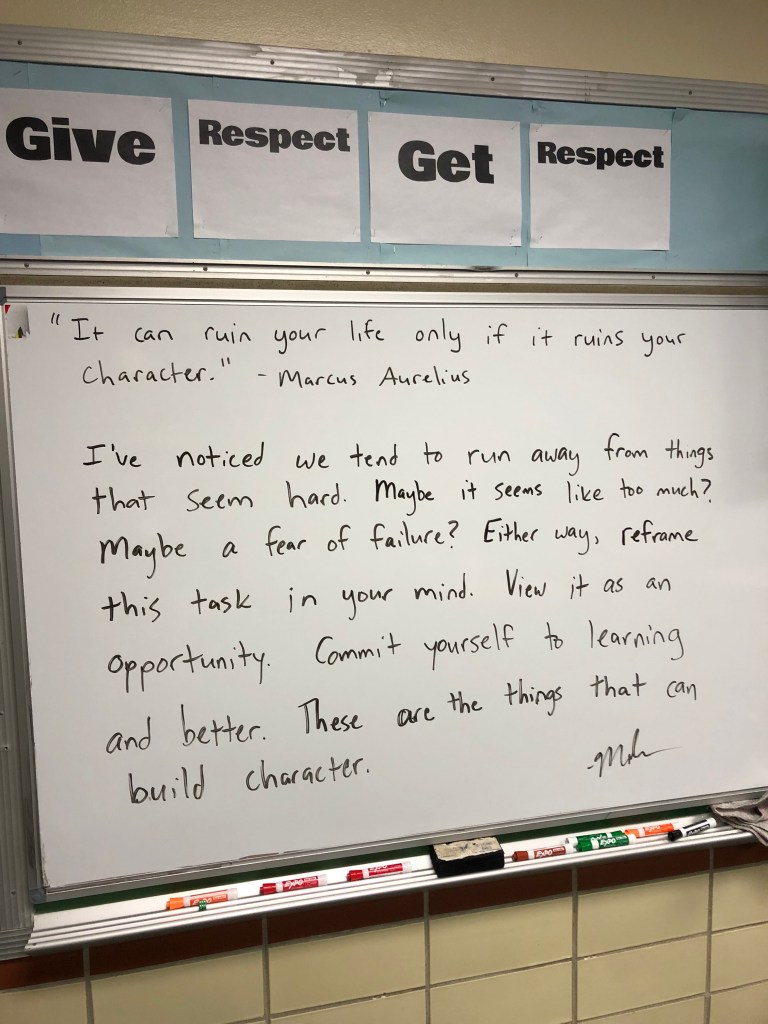 Give Respect Get Respect
"It can ruin your life only if it ruins your
character." - Marcus Aurelius
I've noticed we tend to run away from things
that seem hard. Maybe it seems like too much?
Maybe a fear of failure? Either way, reframe
this task in your mind. View it as an
opportunity. Commit yourself to learning
and better. These are the things that can
build character.
EXPO
EXPO
EXPO